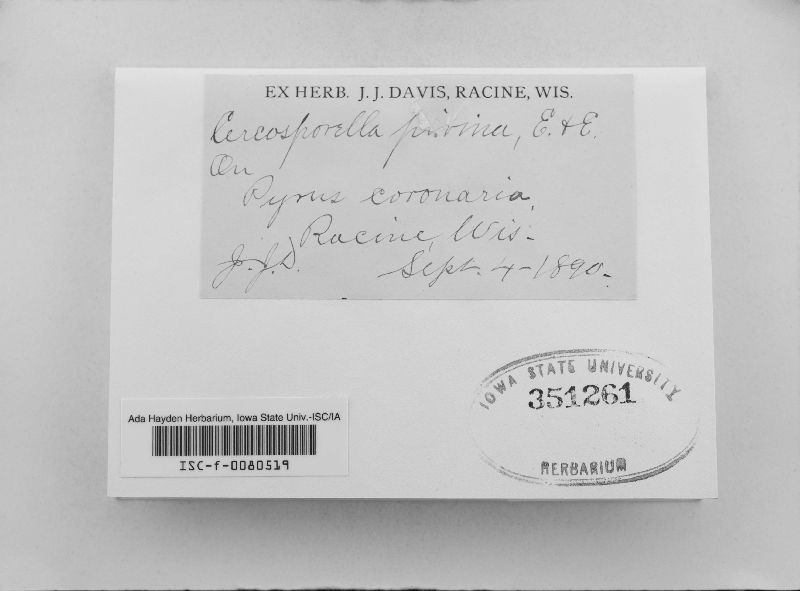 EX HERB. J. J. DAVIS, RACINE, WIS.
Cercosporella pirina, E. & E.
On
Pyrus coronaria,
Racine, Wis-
J. J. D. Sept. 4-1890-
IOWA STATE UNIVERSITY
351261
HERBARIUM
Ada Hayden Herbarium, Iowa State Univ.-ISC/IA
ISC-f-0080519